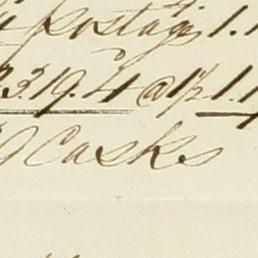 postage 1.1
3.19.4 @ 1/2 1.1
Casks